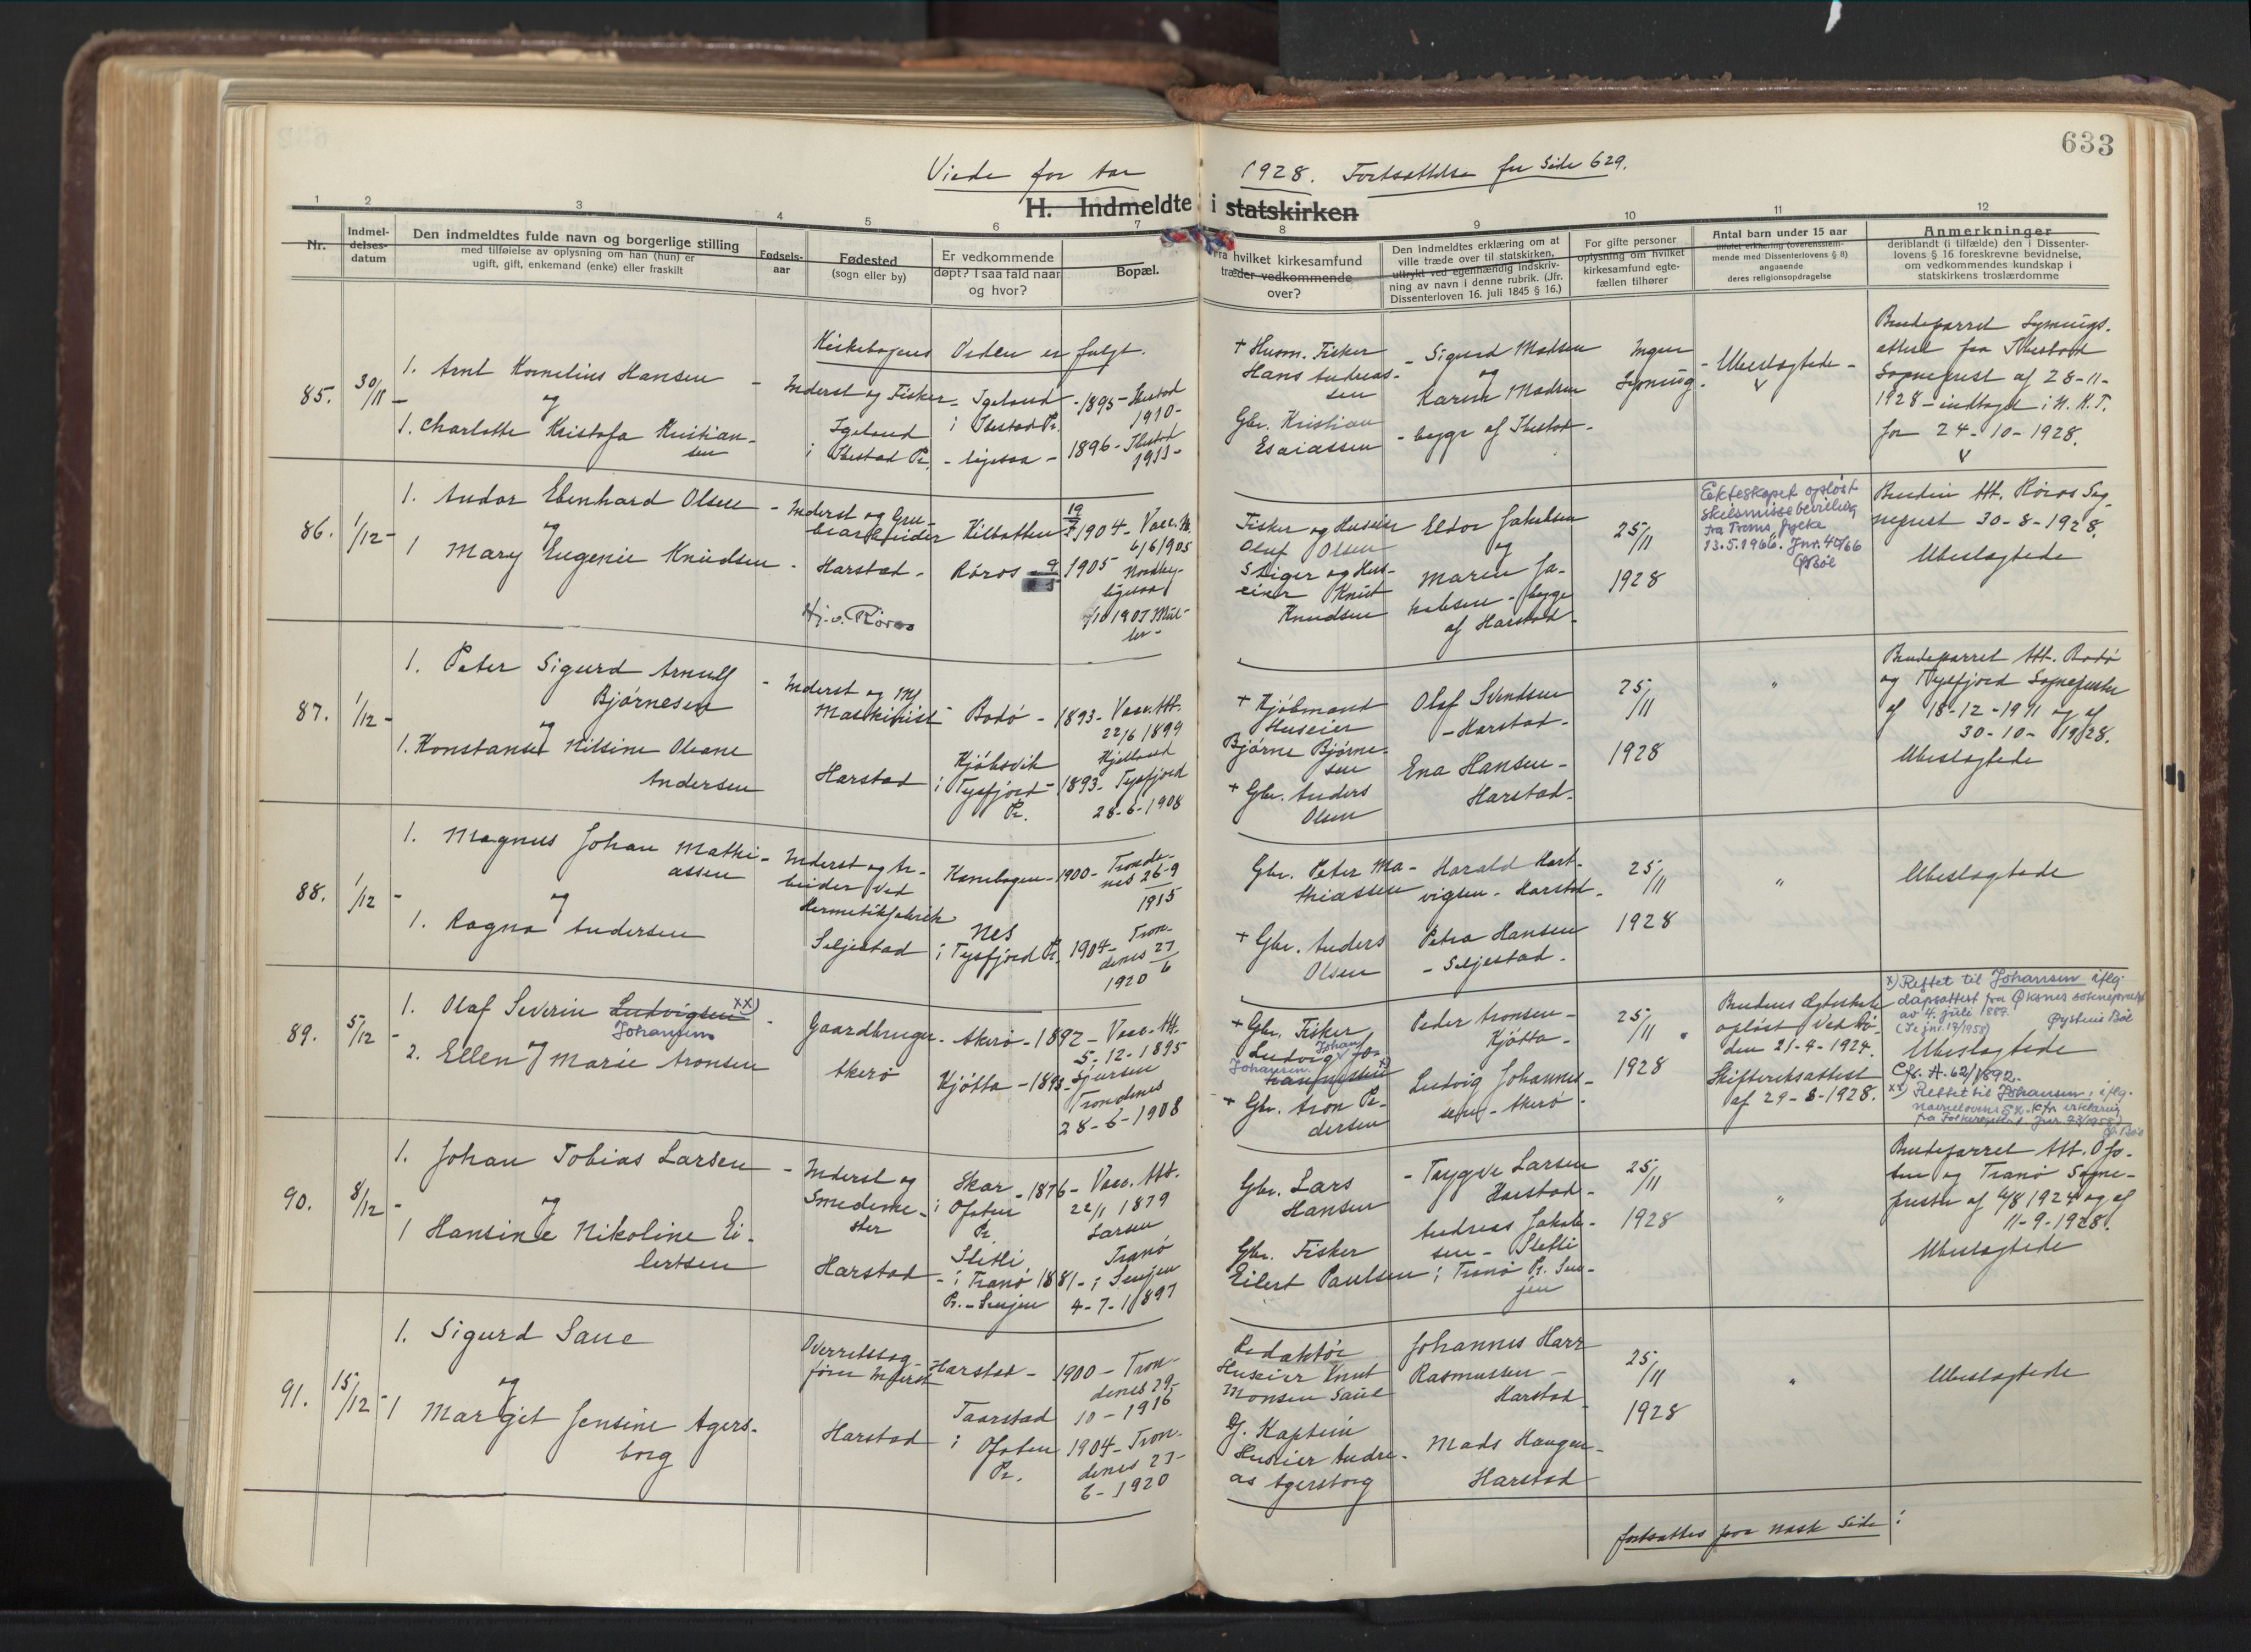 633
Viede for Aar 1928. Fortsættelse fra Side 629.
H. Indmeldte i statskirken
1 2 3 4 5 6 7 8 9 10 11 12
Nr.
Indmel-
delses-
datum
Den indmeldtes fulde navn og borgerlige stilling
med tilføielse av oplysning om han (hun) er
ugift, gift, enkemand (enke) eller fraskilt
Fødsels-
aar
Fødested
(sogn eller by)
Er vedkommende
døpt? I saa fald naar
og hvor?
Bopæl.
Fra hvilket kirkesamfund
træder vedkommende
over?
Den indmeldtes erklæring om at
ville træde over til statskirken,
uttrykt ved egenhændig indskriv-
ning av navn i denne rubrik. (Jfr.
Dissenterloven 16. juli 1845 § 16.)
For gifte personer
oplysning om hvilket
kirkesamfund egte-
fællen tilhører
Antal barn under 15 aar
tilføiet erklæring (overensstem-
mende med Dissenterlovens § 8)
angaaende
deres religionsopdragelse
Anmerkninger
deriblandt (i tilfælde) den i Dissenter-
lovens § 16 foreskrevne bevidnelse,
om vedkommendes kundskap i
statskirkens troslærdomme
Kirkebogens Orden er fulgt.
85. 30/11 -
1. Arnt Kornelius Hansen -
og
1. Charlotte Kristofa Kristian-
sen
Inderst og Fisker -
Igeland
i Ibestad Pr.
Igeland
i Ibestad Pr.
- ligesaa -
- 1895 - Ibestad
1910 -
1896 - Ibestad
1911 -
+ Husm. Fisker
Hans Andreas-
sen
Gbr. Kristian
Esaiassen
- Sigurd Madsen
og
Karen Madsen
- begge af Ibestad -
Ingen
Lysning
- Ubeslægtede -
Brudeparret Lysnings-
attest fra Ibestad
Sogneprest af 28-11-
1928 - indtaget i N. K. T.
for 24-10-1928.
86. 1/12 -
1. Andor Ebenhard Olsen -
og
1 Mary Eugenie Knudsen -
Inderst og Gru-
bearbeider
Harstad -
Hj. v. Røros
Kilbotten
Røros
19/7 1904 - Vacc. Att.
6/6 1905
1905
Fisker og Huseier
Oluf Olsen
Stiger og Hus-
eier Knut
Knudsen
Eldor Jakobsen
og
Maren Ja-
kobsen - begge
af Harstad -
25/11
1928
Ekteskapet opløst
skilsmissebevilling
fra Troms fylke
13.5.1966. Jnr. 40/66
ØBøe
Bruden Att. Røros Sog-
neprest 30-8-1928.
Ubeslægtede
87. 1/12 -
1. Peter Sigurd Arnulf
Bjørnesen
og
1. Konstanse Nilsine Oleane
Andersen
Inderst og
Maskinist
Harstad
Bodø -
Kjøbsvik
i Tysfjord
Pr.
1893 - Vacc. Att.
22/6 1899
Kjelland
1893 - Tysfjord
28-6-1908
+ Kjøbmand
Huseier
Bjørne Bjørne-
sen
+ Gbr. Anders
Olsen
Olaf Svendsen
- Harstad -
Ena Hansen -
Harstad -
25/11
1928
"
Brudeparret Att. Bodø
og Tysfjord Sogneprester
af 18-12-1911 og af
30-10-1928.
Ubeslægtede
88. 1/12 -
1. Magnus Johan Mathi-
assen
og
1. Ragna Andersen
Inderst og Ar-
beider ved
Hermetikfabrik
Seljestad
Kanebogen -
Nes
i Tysfjord Pr.
1900 - Tronde-
nes 26-9
1915
1904 - Tron-
denes 27/6
1920
Gbr. Peter Ma-
thiassen
+ Gbr. Anders
Olsen
Harald Hart-
vigsen - Harstad -
Petra Hansen
- Seljestad -
25/11
1928
"
Ubeslægtede
89. 5/12 -
1. Olaf Severin Ludvigsen xx)
Johansen
og
2. Ellen Marie Aronsen
Gaardbruger -
Akerø
Akerø -
Kjøtta -
1892 - Vacc. Att.
5-12-1895
Sjursen
1893 - Trondenes
28-6-1908
+ Gbr. Fisker
Ludvig Johan
Johansen
+ Gbr. Aron Pe-
dersen
Peder Aronsen -
Kjøtta -
Ludvig Johannes-
sen - Akerø -
25/11
1928
Brudens Ægteskab
opløst ved Dø-
den 21-4-1924.
Skifteretsattest
af 29-8-1928.
x) Rettet til Johansen iflg.
dåpsattest fra Øksnes sokneprest
av 4. juli 1889.
(Se jnr. 17/1958) Øystein Bøe
Ubeslægtede
Cfr. A. 62/1892.
xx) Rettet til Johansen, iflg.
navnelovens § x, kfr erklæring
fra Folkeregistret Jnr. 73/1958
Ø. Bøe
90. 8/12 -
1. Johan Tobias Larsen -
og
1 Hansine Nikoline Ei-
lertsen
Inderst og
Smedeme-
ster
Harstad
Skar
i Ofoten
Pr.
Sletli
- i Tranø
Pr. - Senjen
- 1876 - Vacc. Att.
22/1 1879
Larsen
Tranø
1881 - i Senjen
4-7-1897
Gbr. Lars
Hansen
Gbr. Fisker
Eilert Paulsen
- Trygve Larsen
Harstad -
Andreas Jakob-
sen - Sletli
i Tranø Pr. Sen-
jen
25/11
1928
"
Brudeparret Att. Ofo-
ten og Tranø Sogne-
prester af 4/8 1924 og af
11-9-1928.
Ubeslægtede
91. 15/12 -
1. Sigurd Saue
og
1 Margit Jensine Agers-
borg
Overretssag-
fører Inderst
Harstad
Harstad -
Taarstad
i Ofoten
Pr.
1900 - Tron-
denes 29-
10-1916
1904 - Tron-
denes 27-
6-1920
Redaktør
Huseier Knut
Monsen Saue
Kaptein
Huseier Andre-
as Agersborg
Johannes Harr
Rasmussen -
Harstad
Mads Haugen -
Harstad
25/11
1928
"
Ubeslægtede
fortsættes paa næste Side!